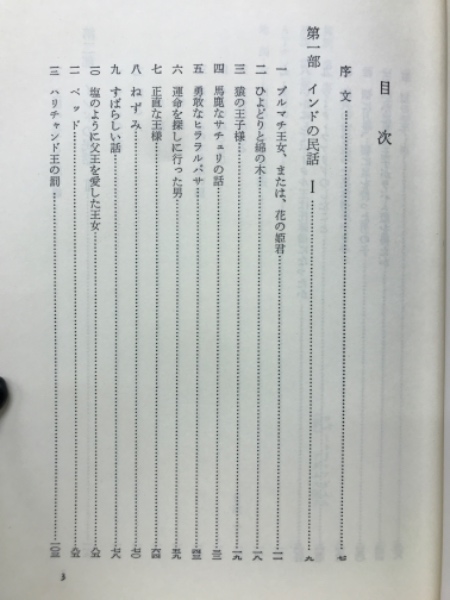 目次
序文
第一部 インドの民話 I 九
一 プルマチ王女、または、花の姫君 一一
二 ひよどりと綿の木 一八
三 猿の王子様 一九
四 馬鹿なサチュリの話 三三
五 勇敢なヒララルバサ 四三
六 運命を探しに行った男 五九
七 正直な王様 六四
八 ねずみ 七〇
九 すばらしい話 七八
一〇 塩のように父王を愛した王女 八五
一一 ベッド
一二 ハリチャンド王の罰 一〇三
3